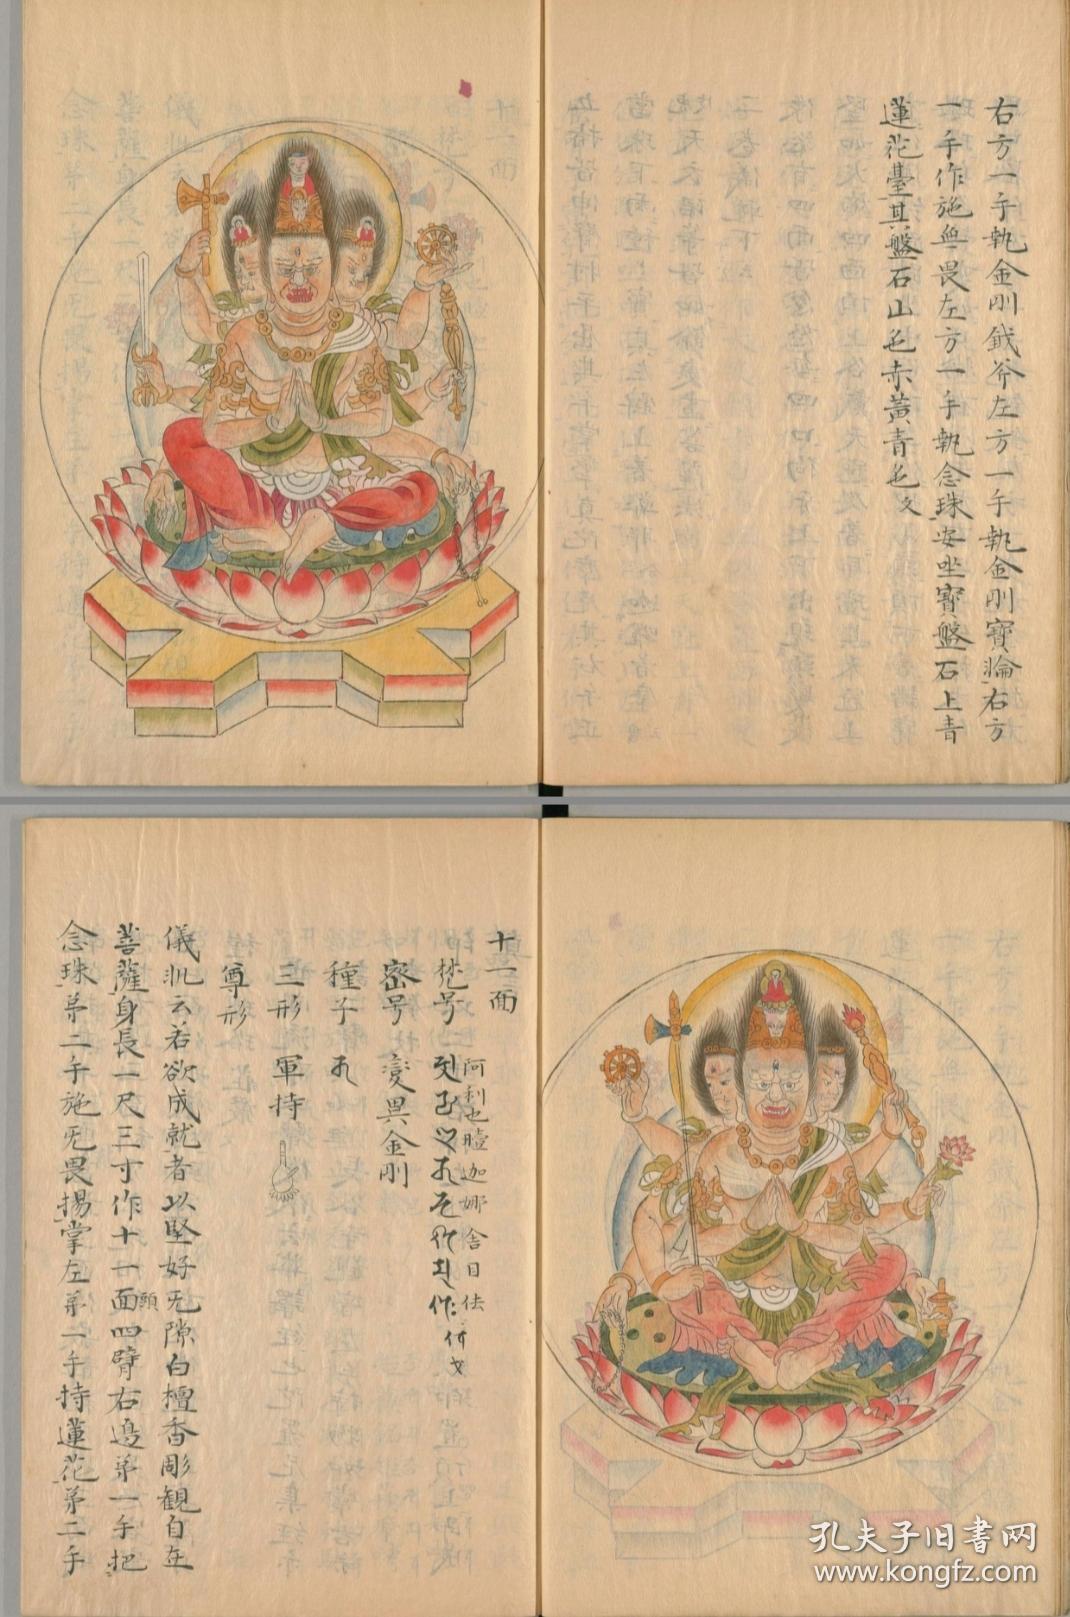 右方一手執金剛鉞斧左方一手執金剛寶輪右方
一手作施無畏左方一手執念珠安坐寶盤石上青
蓮花臺其盤石山色赤黃青色文
十一面
梵号
阿利也瞪迦娜舍目佉
密号 変異金剛
種子
三形 軍持
尊形
儀軌云若欲成就者以堅好无隙白檀香彫観自在
菩薩身長一尺三寸作十一面四臂右邊第一手把
頭
念珠第二手施无畏揚掌左第一手持蓮花第二手
孔夫子旧書网
www.kongfz.com